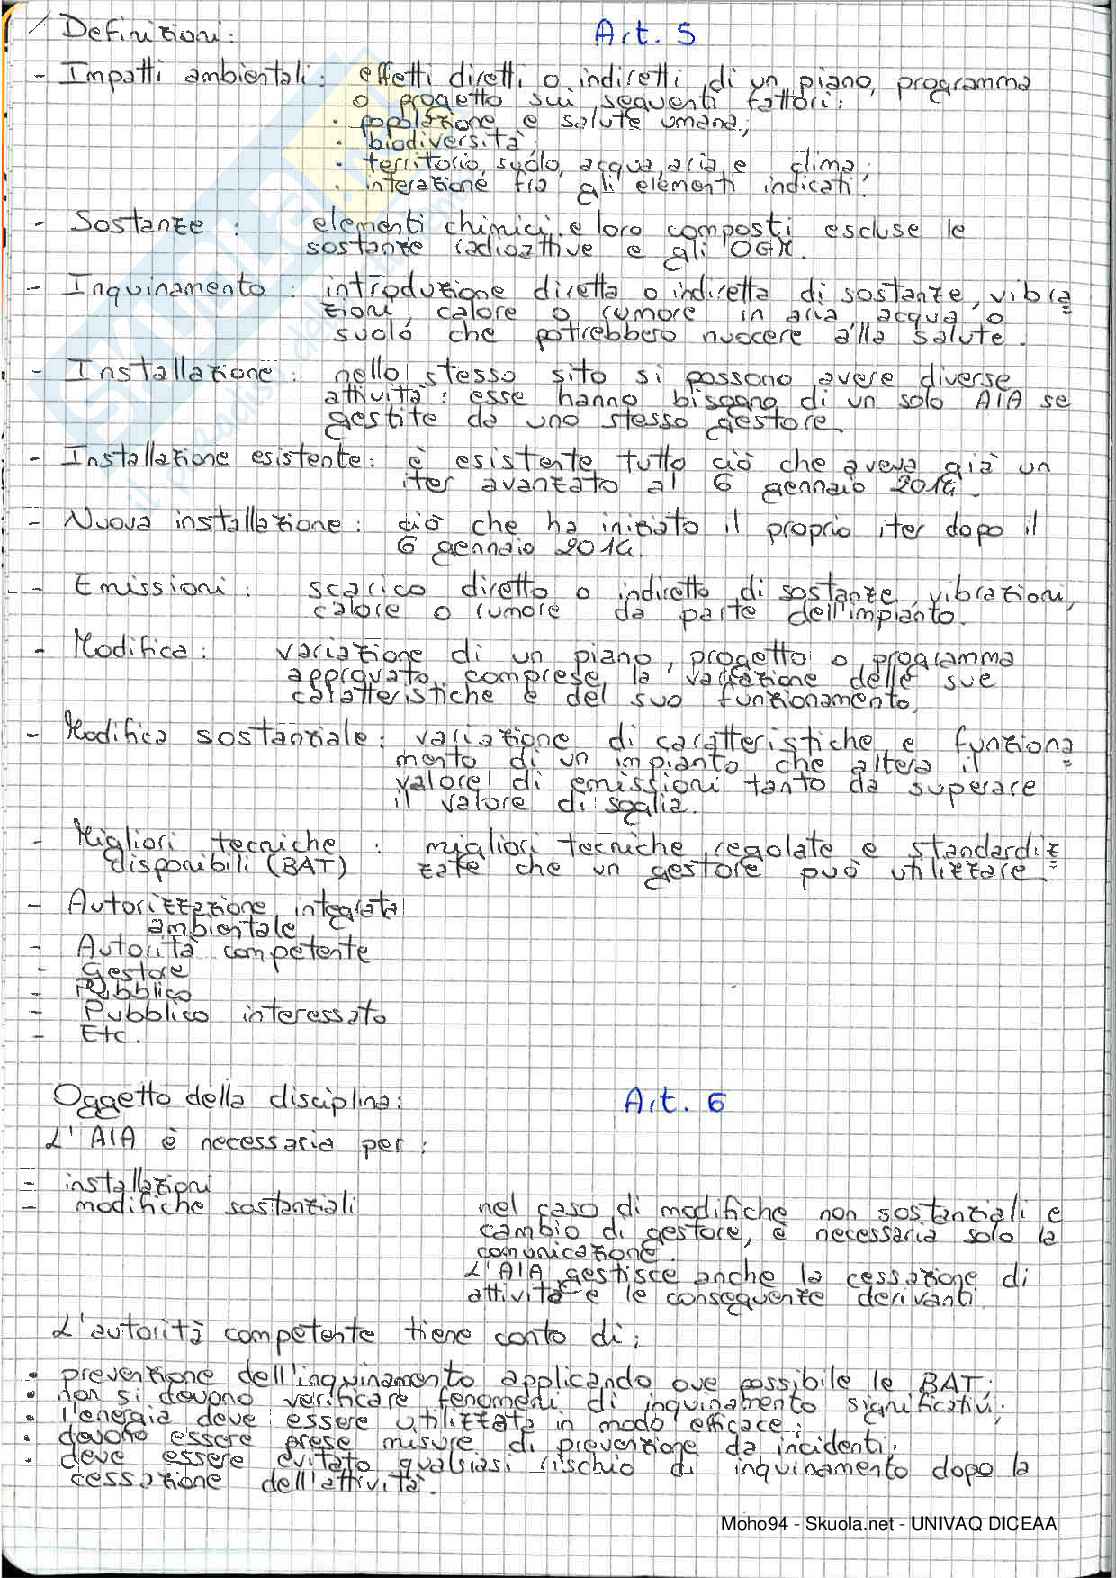 Definizioni: Art. 5
- Impatti ambientali: effetti diretti o indiretti di un piano, programma
o progetto sui seguenti fattori:
· popolazione e salute umana;
· biodiversità;
· territorio, suolo, acqua, aria e clima;
· interazione fra gli elementi indicati.
- Sostanze: elementi chimici e loro composti escluse le
sostanze radioattive e gli OGM.
- Inquinamento: introduzione diretta o indiretta di sostanze, vibra
zioni, calore o rumore in aria, acqua o
suolo che potrebbero nuocere alla salute.
- Installazione: nello stesso sito si possono avere diverse
attività: esse hanno bisogno di un solo AIA se
gestite da uno stesso gestore.
- Installazione esistente: è esistente tutto ciò che aveva già un
iter avanzato al 6 gennaio 2014.
- Nuova installazione: ciò che ha iniziato il proprio iter dopo il
6 gennaio 2014.
- Emissioni: scarico diretto o indiretto di sostanze, vibrazioni,
calore o rumore da parte dell'impianto.
- Modifica: variazione di un piano, progetto o programma
approvato comprese la variazione delle sue
caratteristiche e del suo funzionamento.
- Modifica sostanziale: variazione di caratteristiche e funziona
mento di un impianto che altera il
valore di emissioni tanto da superare
il valore di soglia.
- Migliori tecniche : migliori tecniche regolate e standardiz
disponibili (BAT) zate che un gestore può utilizzare
- Autorizzazione integrata
ambientale
- Autorità competente
- Gestore
- Pubblico
- Pubblico interessato
- Etc.
Oggetto della disciplina: Art. 6
L'AIA è necessaria per:
- installazioni
- modifiche sostanziali nel caso di modifiche non sostanziali e
cambio di gestore, è necessaria solo la
comunicazione.
L'AIA gestisce anche la cessazione di
attività e le conseguenze derivanti.
L'autorità competente tiene conto di:
· prevenzione dell'inquinamento applicando ove possibile le BAT;
· non si devono verificare fenomeni di inquinamento significativi;
· l'energia deve essere utilizzata in modo efficace;
· devono essere prese misure di prevenzione da incidenti;
· deve essere evitato qualsiasi rischio di inquinamento dopo la
cessazione dell'attività.
Moho94 - Skuola.net - UNIVAQ DICEAA